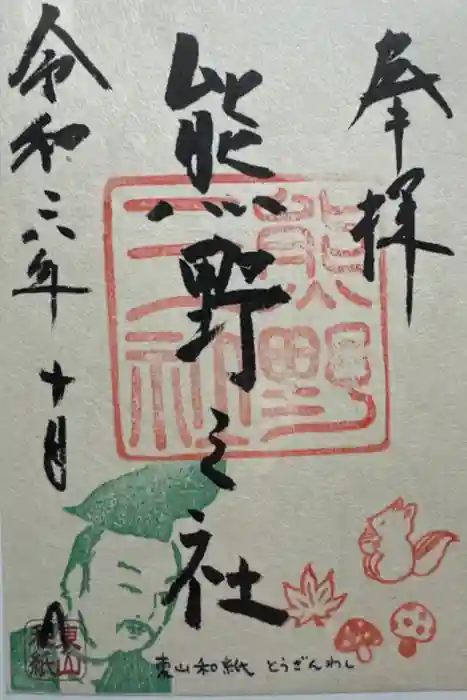 奉拝
熊野三社
熊野
三社
令和六年十月 日
東山
和紙
東山和紙 とうざんわし